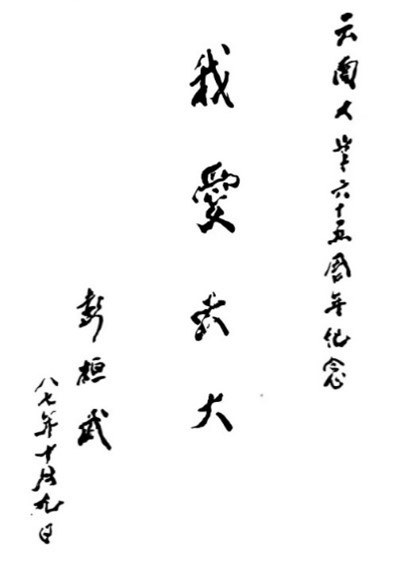 云南大学六十五周年纪念
我愛云大
彭桓武
八七年十月九日